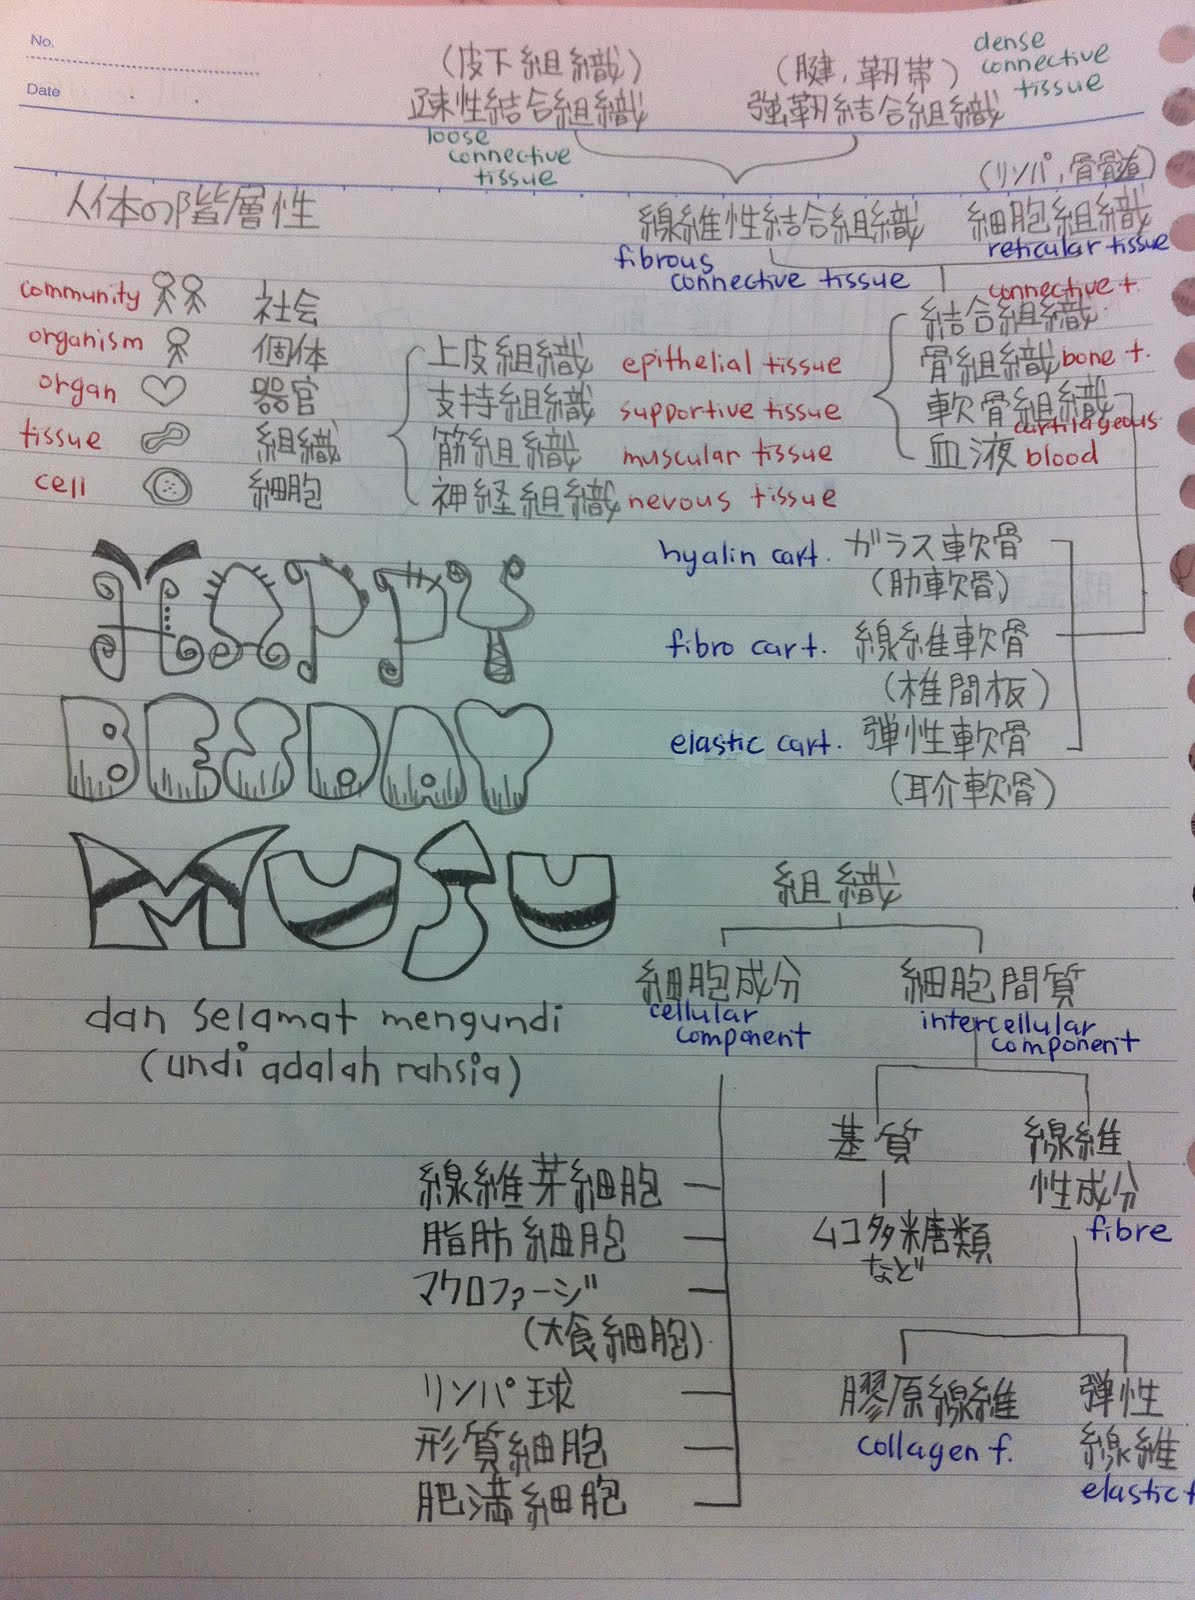 No.
Date
(皮下組織)
疎性結合組織
loose
connective
tissue
(腱,靭帯)
強靭結合組織
dense
connective
tissue
人体の階層性
(リンパ,骨髄)
線維性結合組織
fibrous
connective tissue
細胞組織
reticular tissue
community 社会
organism 個体
organ 器官
tissue 組織
cell 細胞
上皮組織 epithelial tissue
支持組織 supportive tissue
筋組織 muscular tissue
神経組織 nevous tissue
connective t.
結合組織
骨組織 bone t.
軟骨組織
cartilageous
血液 blood
hyalin cart. ガラス軟骨
(肋軟骨)
fibro cart. 線維軟骨
(椎間板)
elastic cart. 弾性軟骨
(耳介軟骨)
HAPPY
BESDAY
MUSU
dan selamat mengundi
(undi adalah rahsia)
組織
細胞成分
cellular
component
細胞間質
intercellular
component
線維芽細胞
脂肪細胞
マクロファージ
(大食細胞)
リンパ球
形質細胞
肥満細胞
基質
ムコ多糖類
など
線維
性成分
fibre
膠原線維
collagen f.
弾性
線維
elastic f